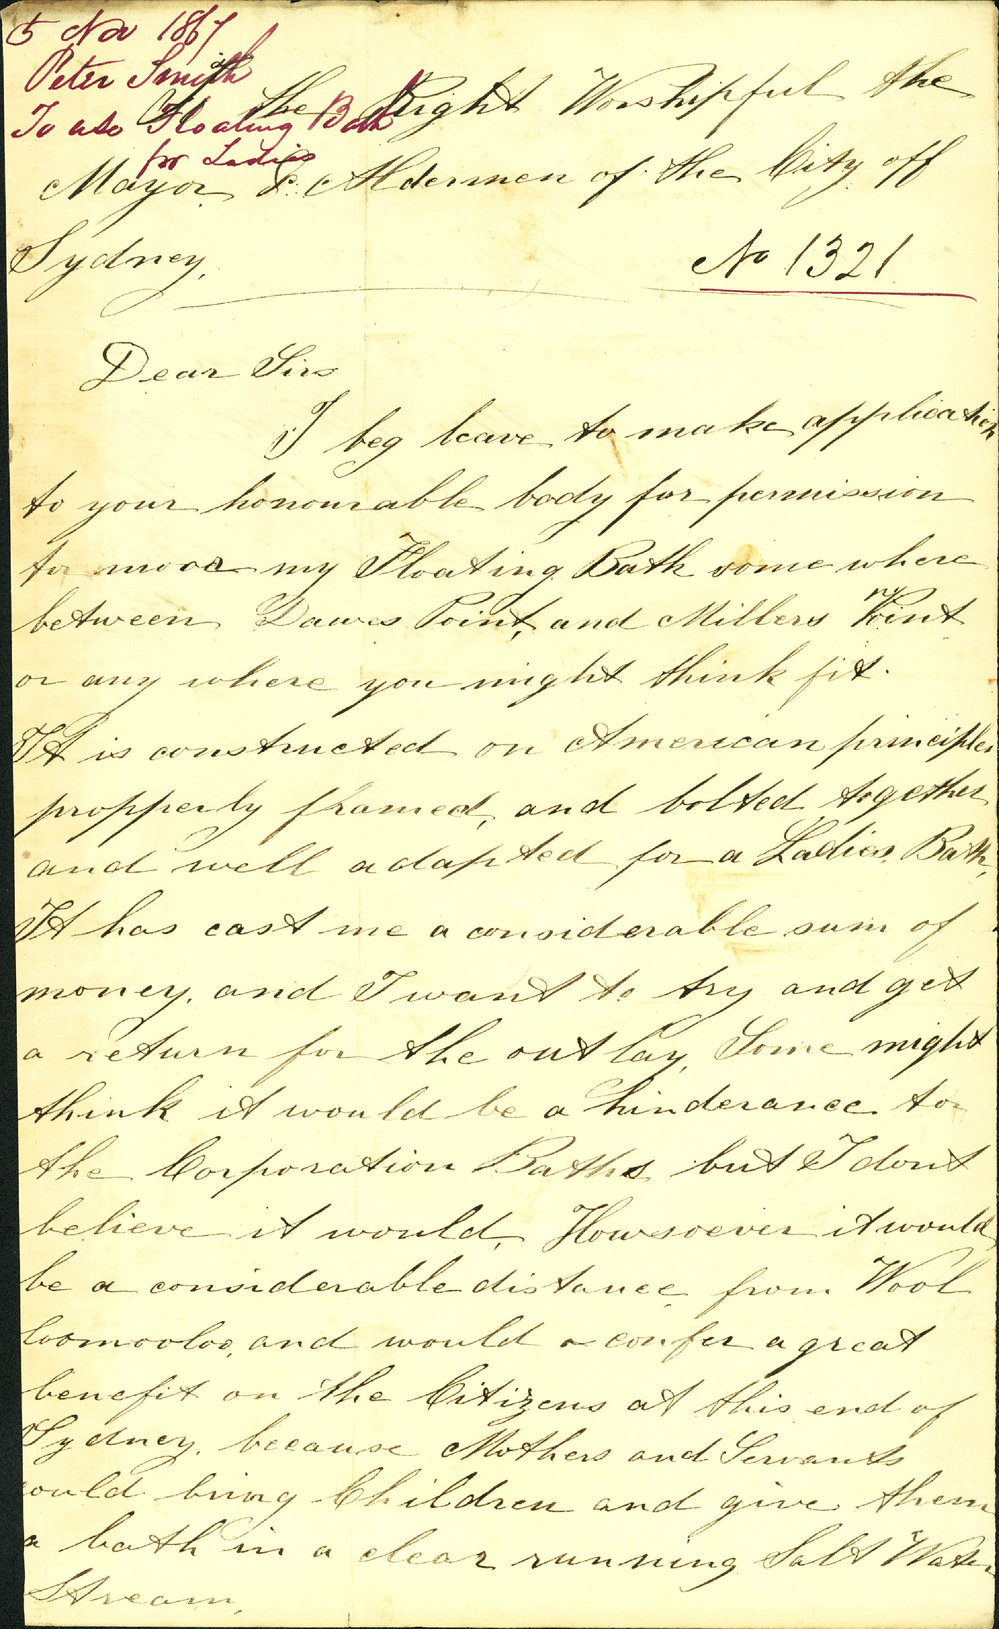 5 Nov 1867
Peter Smith
To use Floating Bath
for Ladies
To the Right Worshipful the
Mayor & Aldermen of the City off
Sydney,
No 1321
Dear Sirs
I beg leave to make application
to your honourable body for permission
to moor my Floating Bath some where
between Dawes Point, and Millers Point
or any where you might think fit.
It is constructed on American principles
propperly framed, and bolted together
and well adapted for a Ladies Bath,
It has cast me a considerable sum of
money, and I want to try and get
a return for the out lay, Some might
think it would be a hinderance to
the Corporation Baths but I dont
believe it would, Howsoever it would
be a considerable distance from Wool
loomooloo, and would confer a great
benefit on the Citizens at this end of
Sydney, because Mothers and Servants
could bring Children and give them
a bath in a clear running Salt Water
Stream,